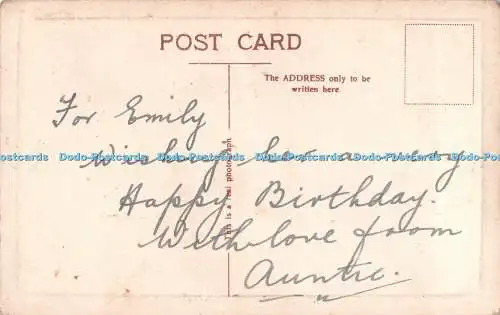 POST CARD
The ADDRESS only to be
written here.
For Emily
Wishing her a very
Happy Birthday.
With love from
Auntie.
This is a real photograph
Dodo-Postcards Dodo-Postcards Dodo-Postcards Dodo-Postcards